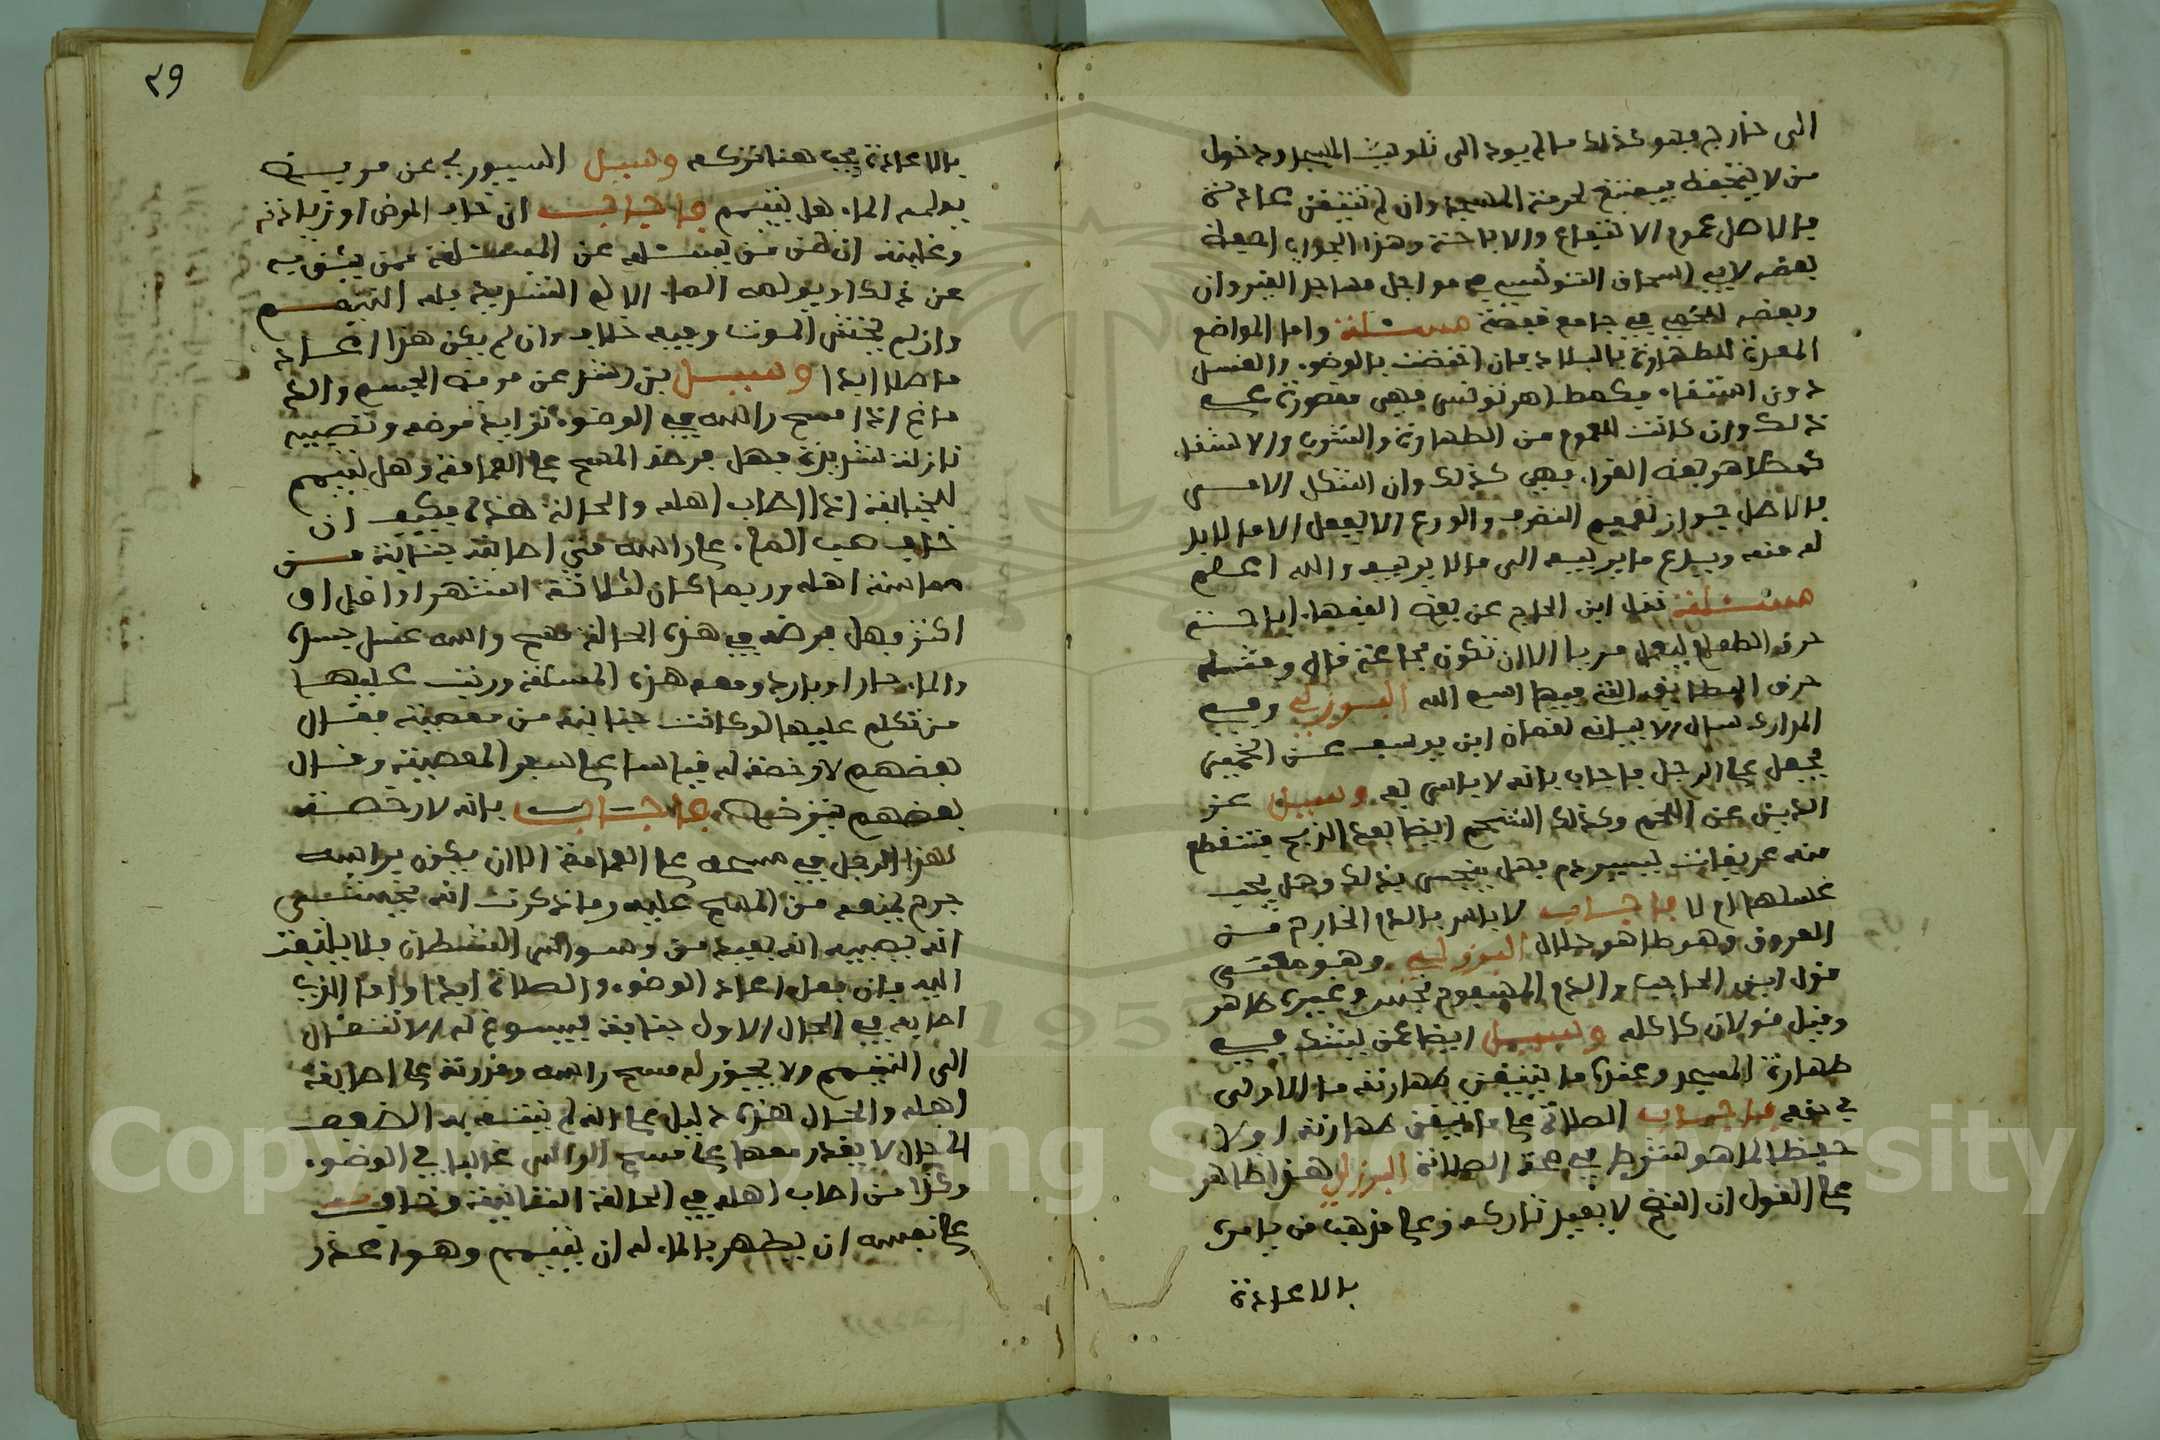 الى خارج فهو كذلك ما لم يود الى تلويث المسجد ودخول
من لا يتحفظ فيمتنع لحرمة المسجد وان لم تتيقن عادة
فالاصل عموم الانتفاع والاباحة وهذا الجواب
بعضه لابي اسحاق التونسي في مواجل مساجد القيروان
وبعضه للخمي في جامع قفصة مسئلة واما المواضع
المعدة للطهارة بالبلاد فان اختصت بالوضوء والغسل
دون استقاء فهي مقصورة على
ذلك وان كانت للعموم من الطهارة والشرب والاستقاء
بعض القراء فهي كذلك وان اشكل الامر
فالاصل جواز تعميم التصرف والورع الا يفعل الا ما لا بد
له منه ويدع ما يريبه الى ما لا يريبه والله اعلم
مسئلة نقل ابن الحاج عن بعض الفقهاء اباحة
حرق الطعام ليعمل مريا الا ان تكون مجاعة قال ومثله
حرق البطائق التي فيها اسم الله البرزلي وفي
المدارك سال الابياني لقمان ابن يوسف عن
يجعل على الرجل فاجاب بانه لا باس به وسيل عز
الدين عن اللحم وكذلك الشحم ايضا بعد الذبح فتنقطع
منه عريقات ليسير دم فهل ينجس بذلك وهل يجب
غسلها ام لا فاجاب لا باس بالدم الخارج من
العروق وهو طاهر حلال البرزلي وهو مقتضى
قول ابن الحاجب والدم المسفوح نجس وغيره طاهر
وقيل قولان كاكله وسيل ايضا عمن يشك في
طهارة المسجد وعنده ما يتيقن طهارته ما الاولى
في حقه فاجاب الصلاة على ما تتيقن طهارته اولا
حيطا لما هو شرط في صحة الصلاة البرزلي هذا ظاهر
على القول ان النضح لا يعيد تاركه وعلى مذهب من يامره
بالاعادة
٢٩
بالاعادة يجب هنا تركه وسيل السيوري عن مريض
يولمه الماء هل يتيمم فاجاب ان خاف المرض او زيادته
وغلبته ان ظن من يسئله عن المسئلة ممن يثق به
عن ذلك او يولمه الماء الالم الشديد فله التيمم
وان لم يخش الموت وفيه خلاف وان لم يكن هذا اعاد
ما صلا ابدا وسيل بن رشد عن مريض الجسم والد
ماغ اذا مسح راسه في الوضوء تزايد مرضه وتصيبه
نازلة شديدة فهل فرضه المسح على العمامة وهل يتيمم
للجنابة اذا اصاب اهله والحالة هذه فكيف ان
خاف صب الماء على راسه متى اصابته جنابة من
مماسة اهله وربما كان لثلاثة اشهر او اقل او
اكثر وهل فرضه في هذه الحالة مسح راسه غسل جسده
والماء حار او بارد ومعه هذه المسئلة وردت علينا
من تكلم عليها لو كانت جنابته من معصية فقال
بعضهم لا رخصة له قياسا على سفر المعصية وقال
بعضهم يترخص فاجاب بانه لا رخصة
لهذا الرجل في مسحه على العمامة الا ان يكون براسه
جرح يمنعه من المسح عليه وما ذكرت انه يخشى
انه يصيبه انه يعيد من وسواس الشيطان فلا يلتفت
اليه فان فعل اعاد الوضوء والصلاة ابدا واما الذي
اصابه في الحال الاول جنابة فيسوغ له الانتقال
الى التيمم ولا يجوز له مسح راسه وقدرته على اصابة
اهله والحال هذه دليل على انه لم ينته به الضعف
الى حال لا يقدر معها على مسح الراس غالبا في الوضوء
وكذا من اصاب اهله في الحالة الثانية وخاف
على نفسه ان يطهر بالماء له ان يتيمم وهو اعذر
Copyright © King Saud University
1957